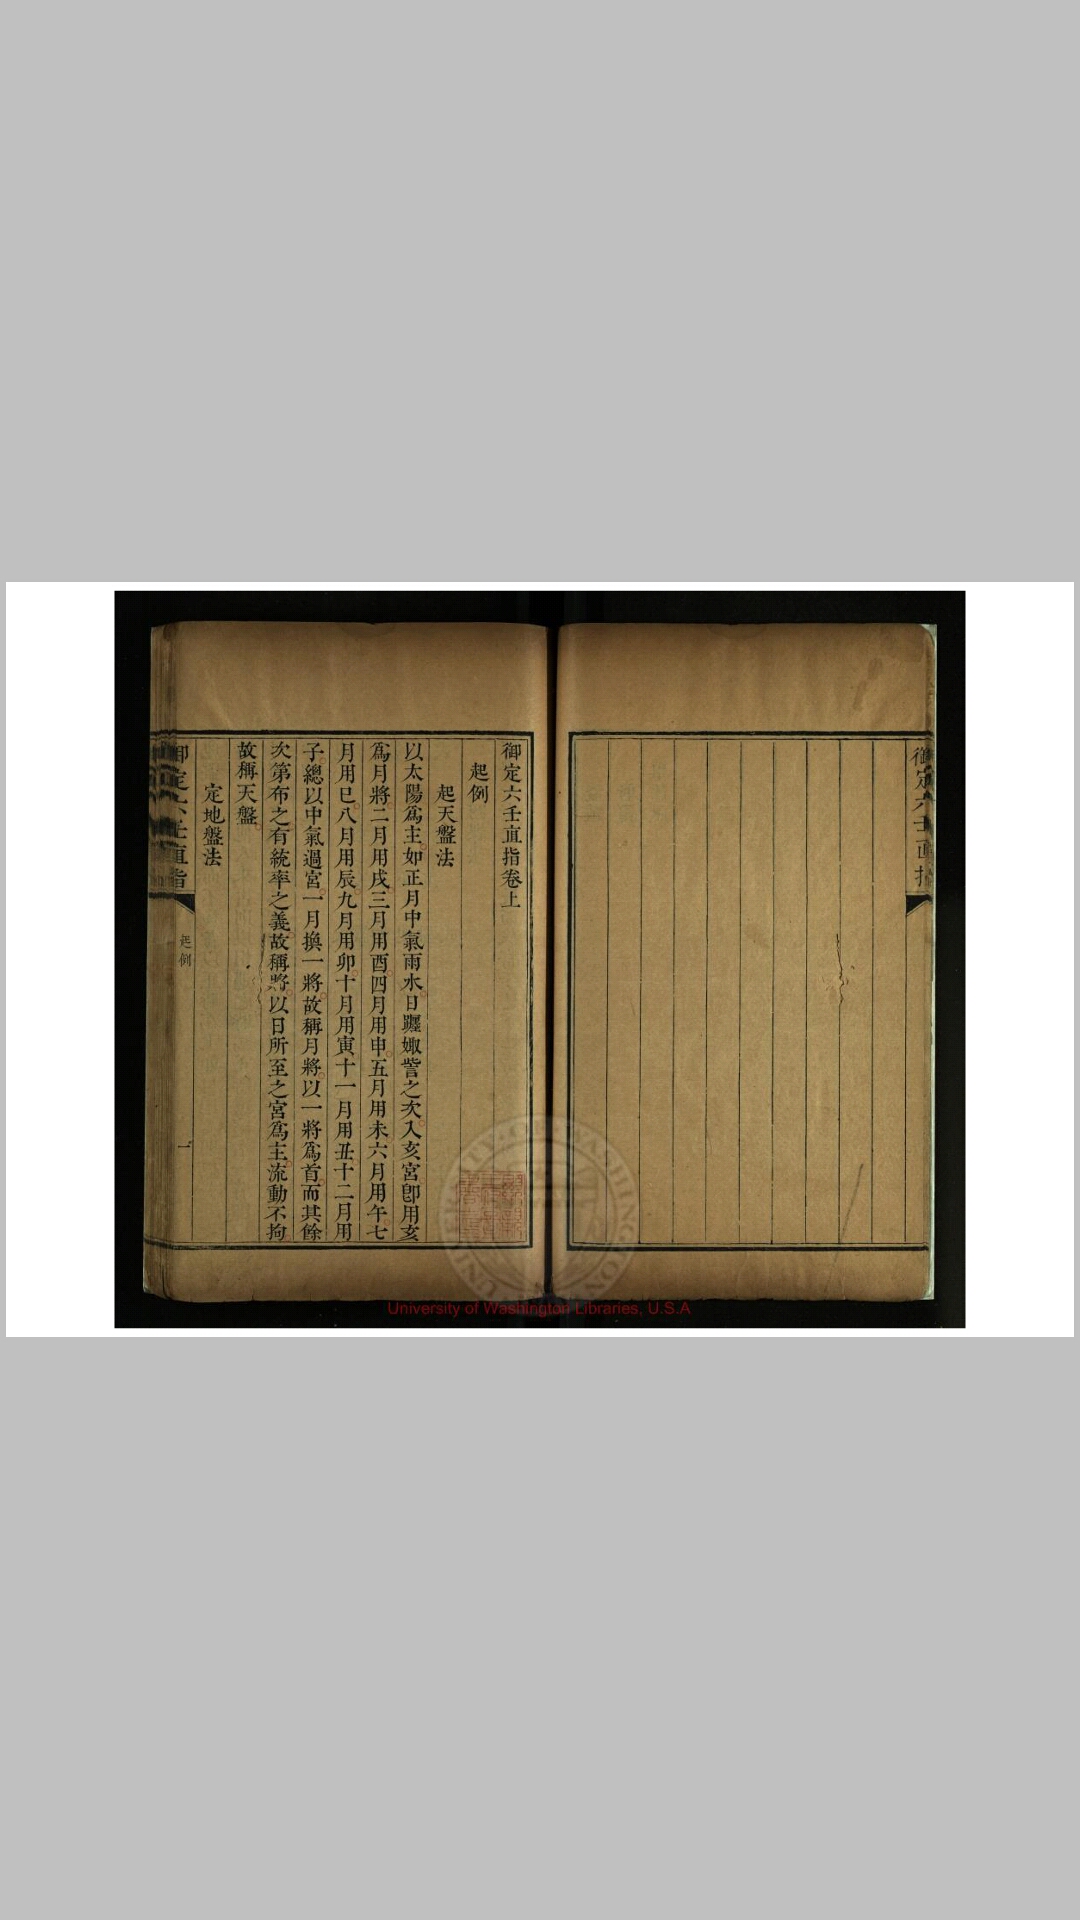 御定六壬直指
御定六壬直指卷上
起例
起天盤法
以太陽爲主如正月中氣雨水日躔娵訾之次入亥宮卽用亥
爲月將二月用戌三月用酉四月用申五月用未六月用午七
月用巳八月用辰九月用卯十月用寅十一月用丑十二月用
子總以中氣過宮一月換一將故稱月將以一將爲首而其餘
次第布之有統率之義故稱將以日所至之宮爲主流動不拘
故稱天盤
定地盤法
御定六壬直指
起例
一
University of Washington Libraries, U.S.A